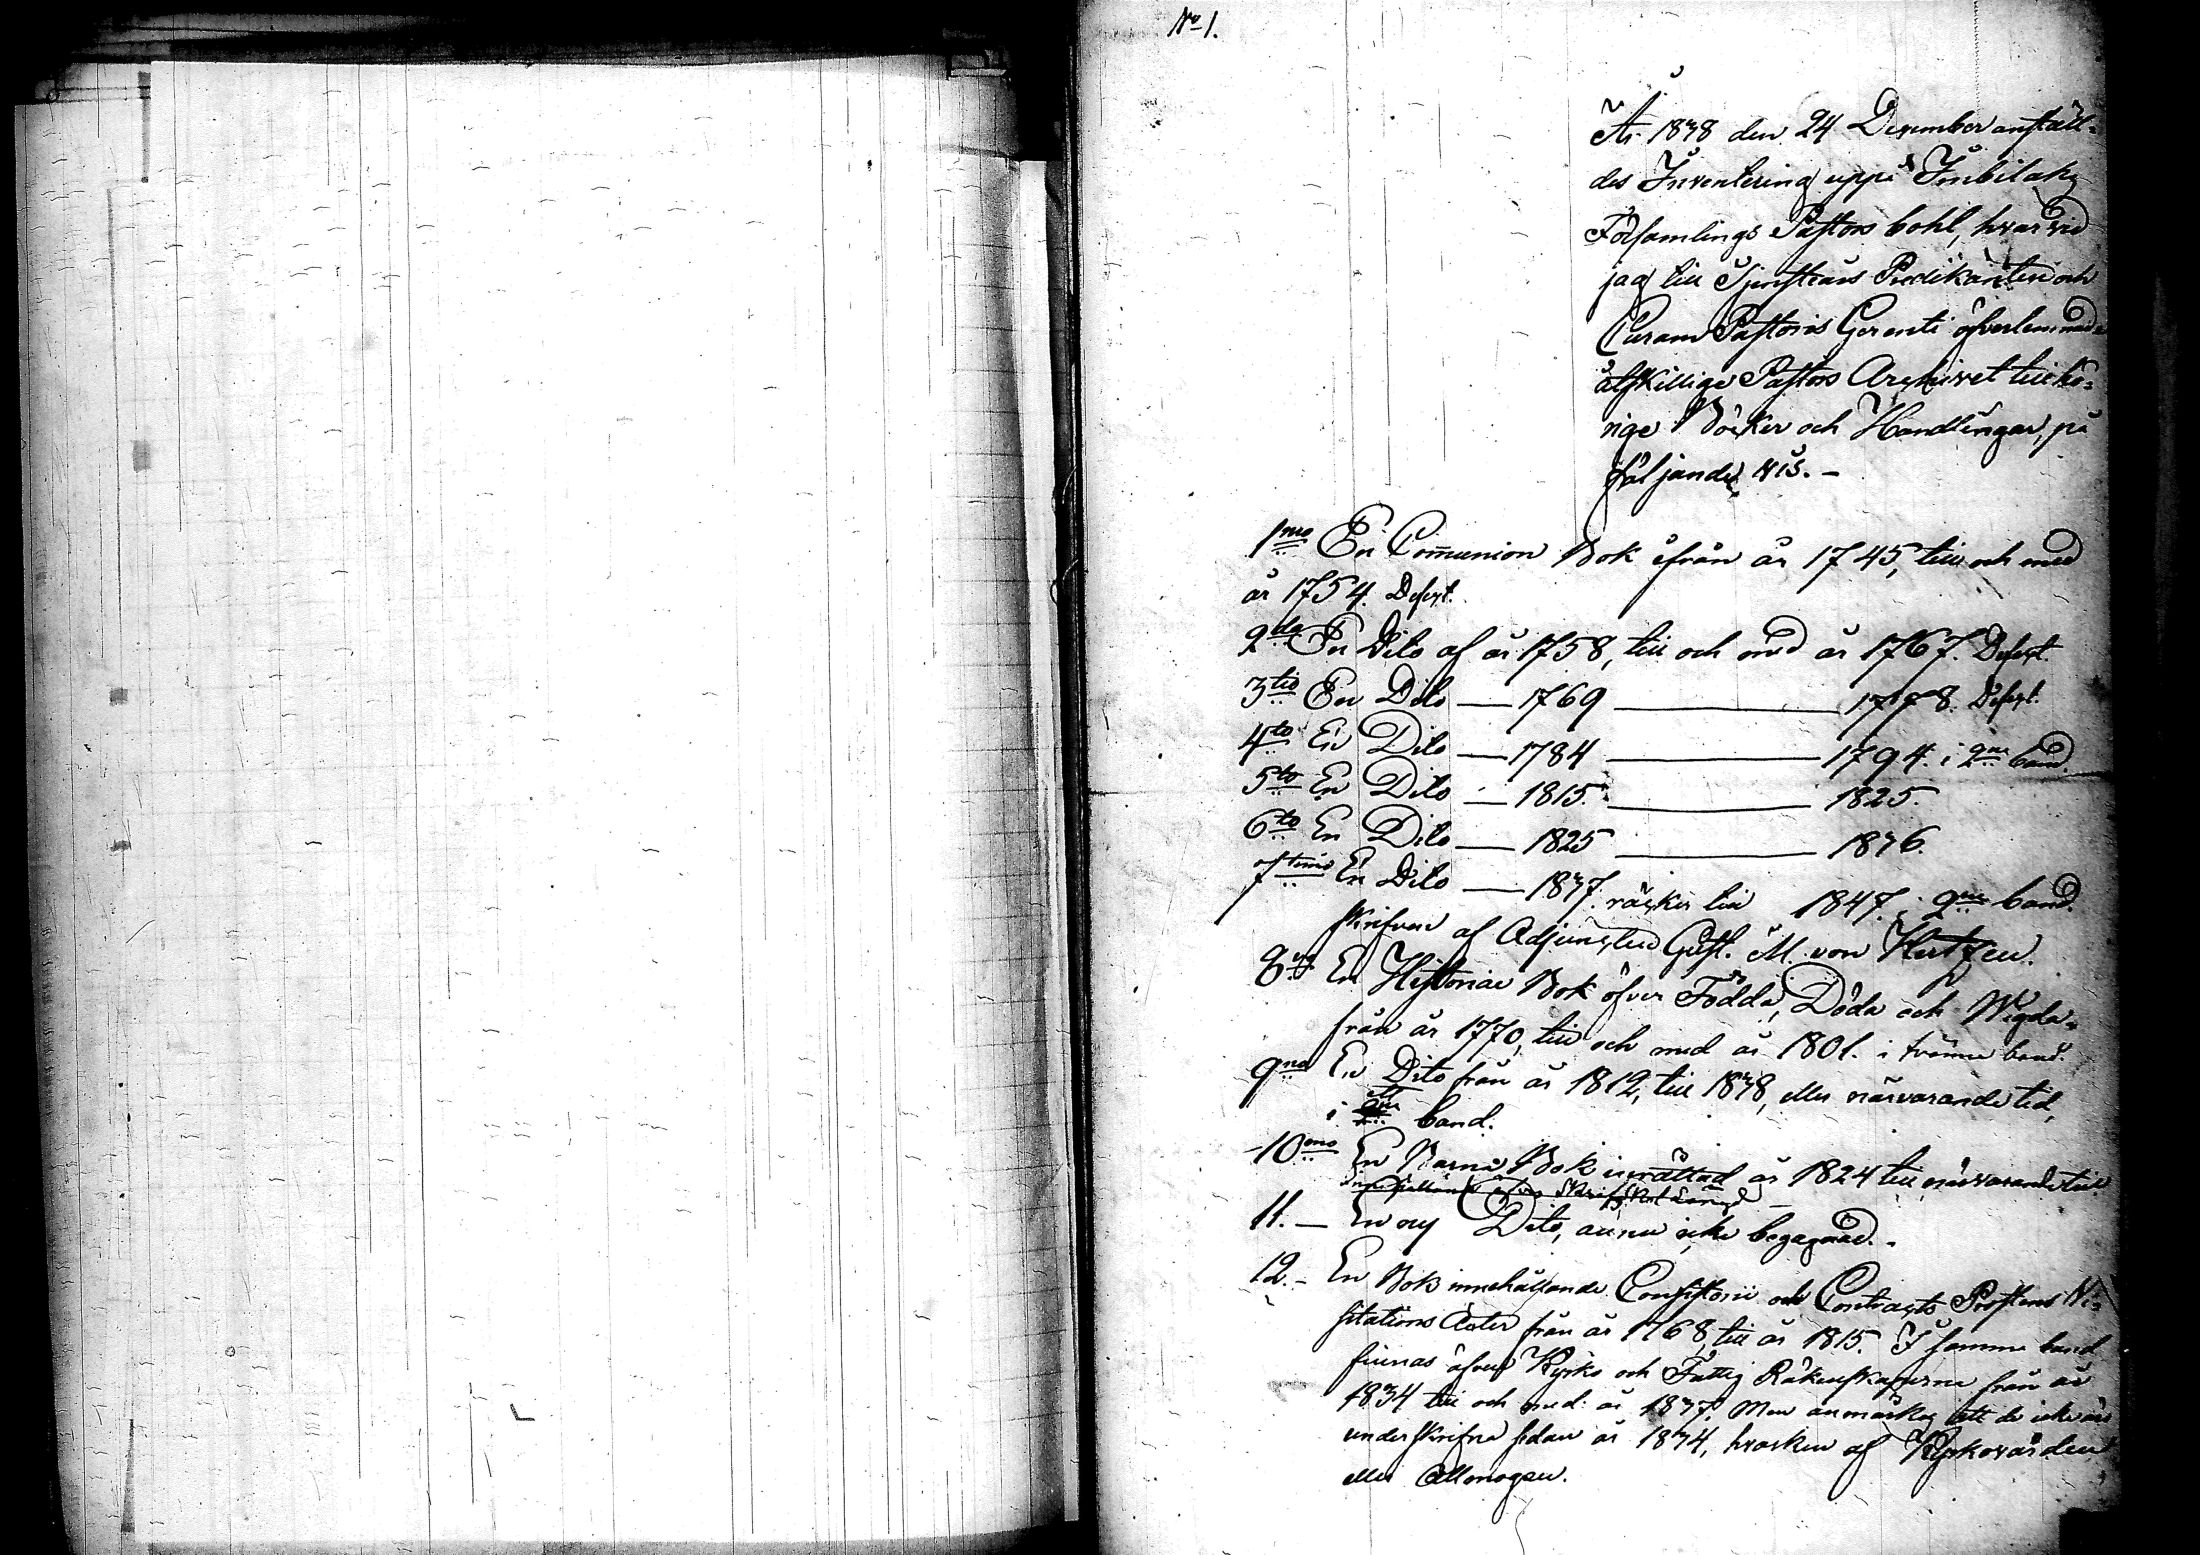 No 1.
År 1838 den 24 December anställ=
des Inventering uppå Imbilaks
Församlings Pastors bohl, hvarvid
jag till Tjensteårs Predikanten och
Curam Pastoris Gerenti öfverlemnade
åtskillige Pastors Archivet tillhö=
rige Böcker och Handlingar, på
följande vis. -
1mo En Com̄union Bok ifrån år 1745, till och med
år 1754. Defect.
2do En Dito af år 1758, till och med år 1767. Defect.
3tio En Dito — 1769 — 1778. Defect.
4to En Dito — 1784 — 1794. i 2ne band.
5to En Dito — 1815. — 1825.
6to En Dito — 1825 — 1836.
7timo En Dito — 1837. räcker till 1847. i 2ne band.
skrifven af Adjuncten Gust. M. von Hertzen.
8vo En Historiae Bok öfver Födda, Döda och Wigda=
från år 1770, till och med år 1801. i tvänne band.
9no En Dito från år 1812, till 1838, eller närvarande tid,
i ett band.
10mo En Barna Bok inrättad år 1824 till närvarande tid.
11. — En ny Dito, ännu icke begagnad. -
12. - En Bok innehållande Consistorii och Contracts Prostens Vi=
sitations Acter från år 1768, till år 1815. I samma band
finnas äfven Kyrko och Fattig Räkenskaperna från år
1834 till och med år 1837. Men anmärkes att de icke äro
underskrifne sedan år 1834, hvarken af Kyrkovärden
eller Allmogen.